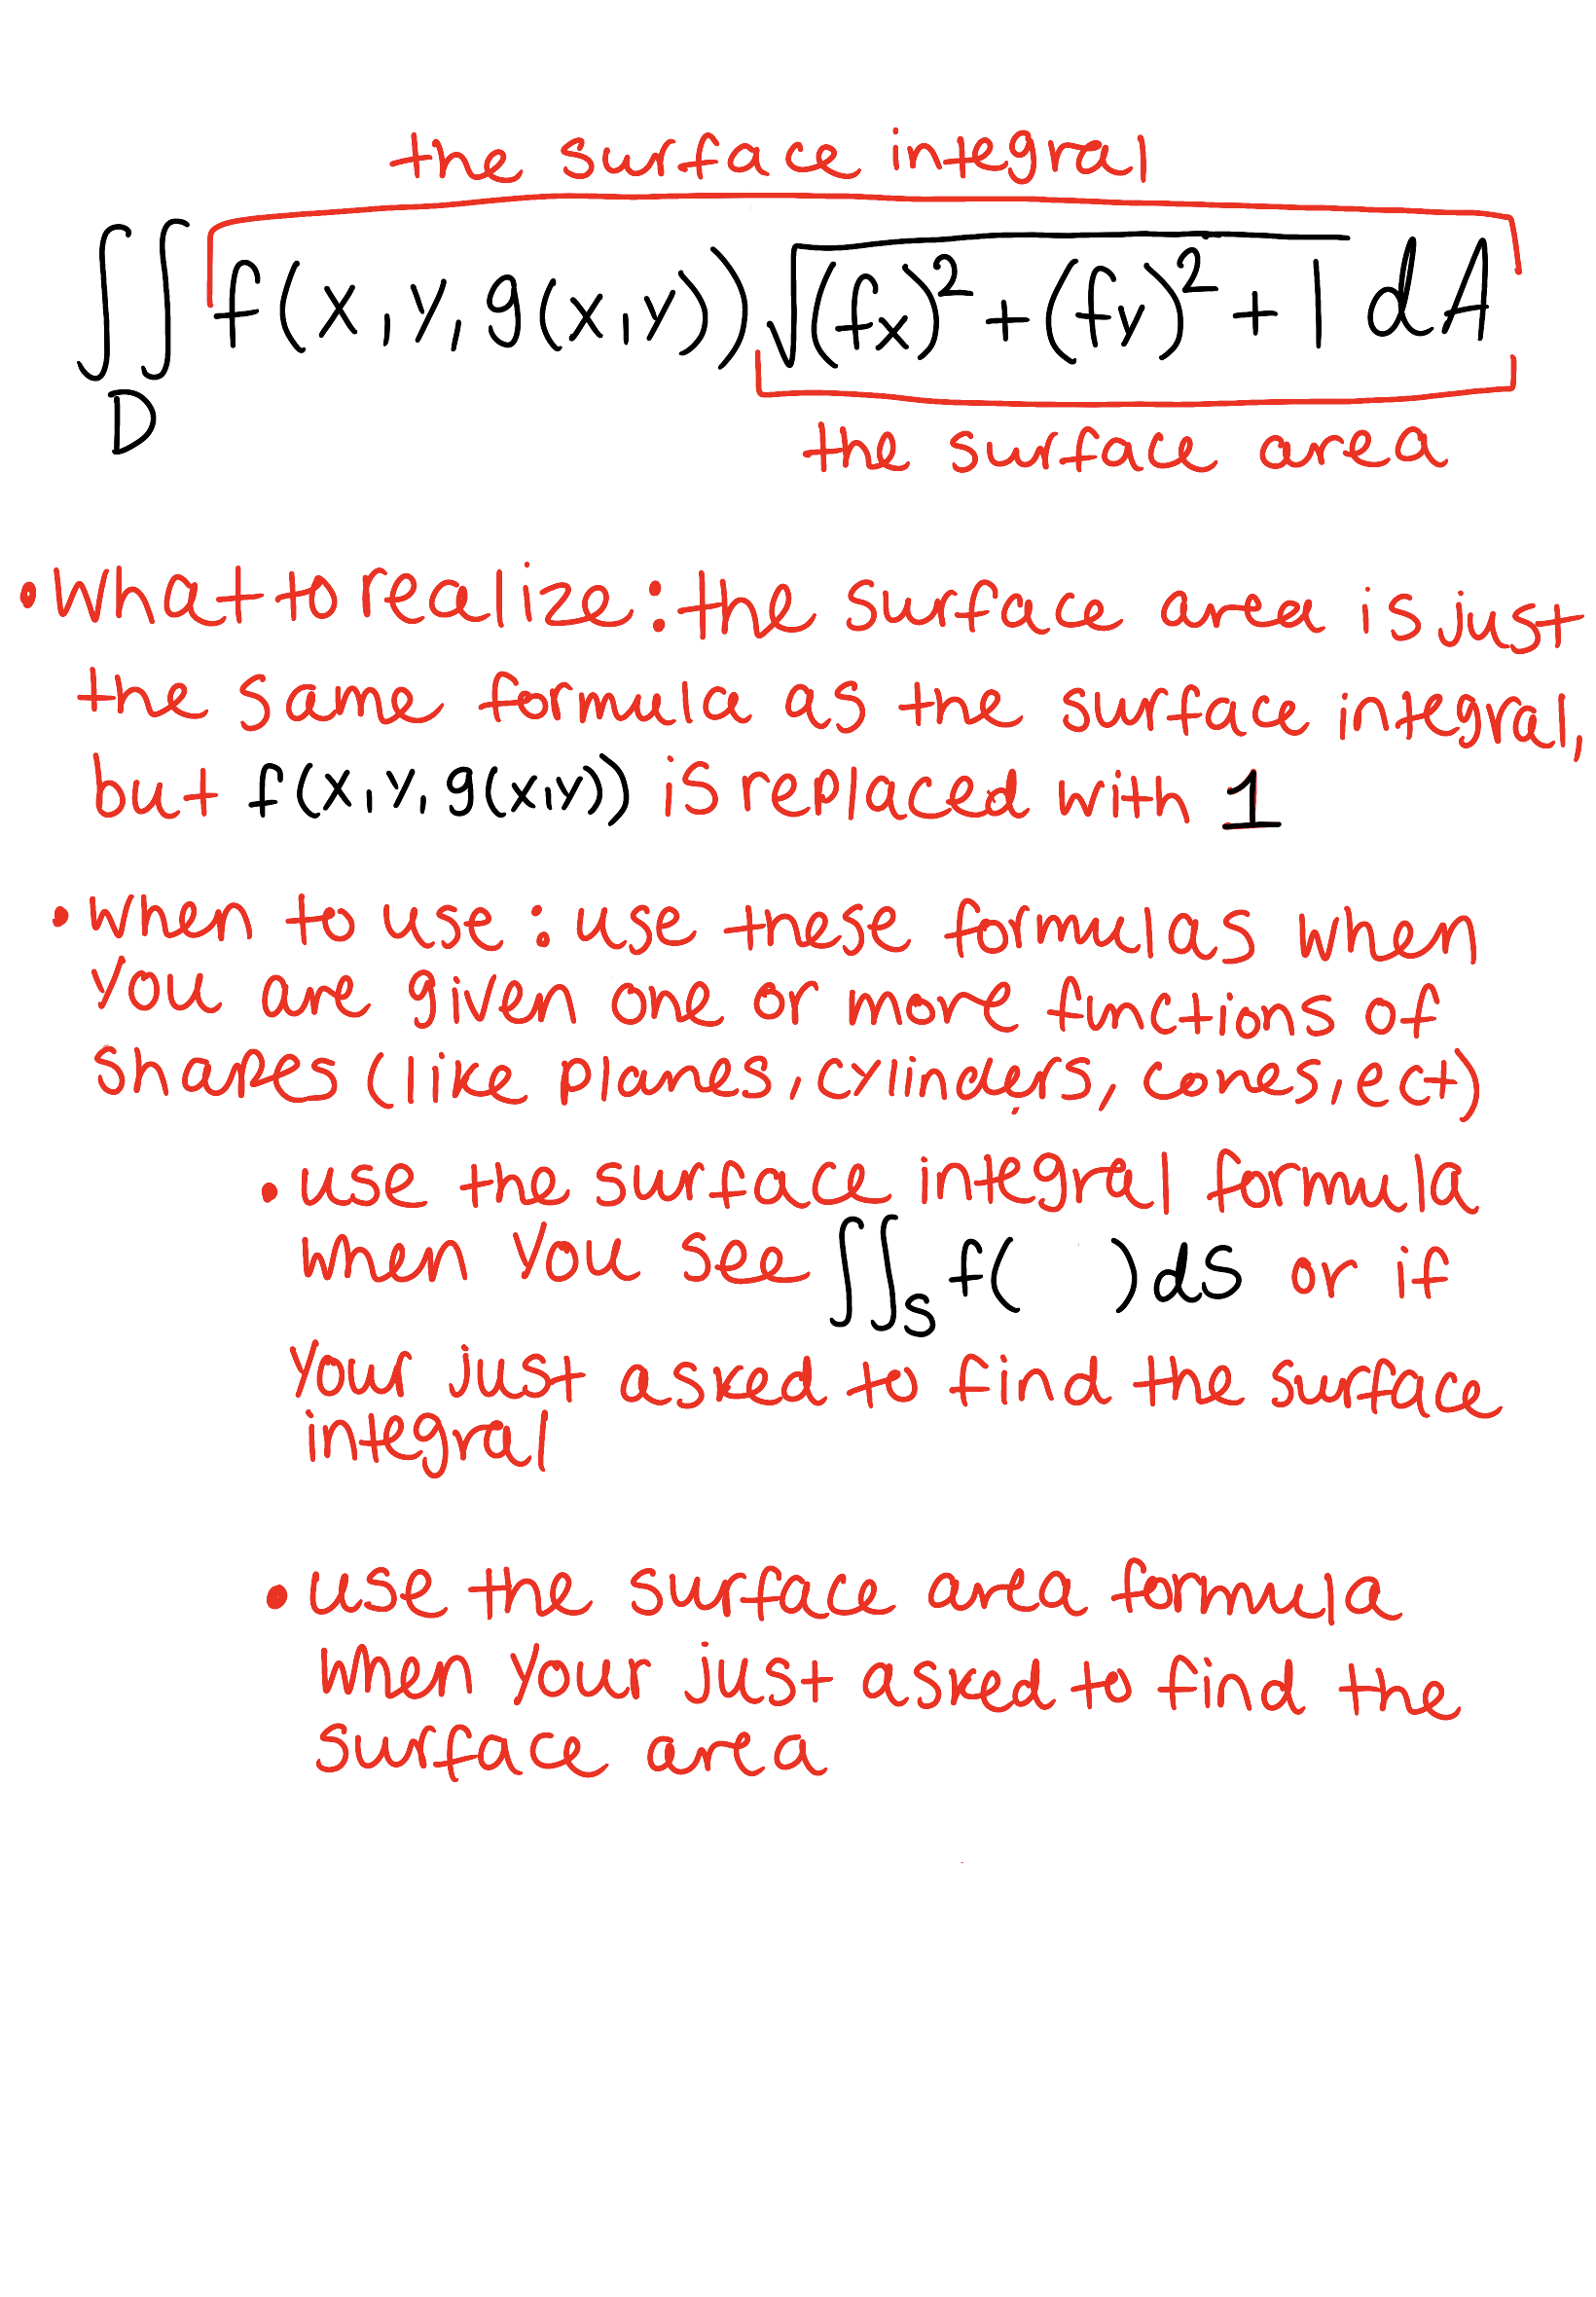 the surface integral
∬ f(x,y,g(x,y))√(fx)²+(fy)²+1 dA
D
the surface area
•What to realize: the surface area is just
the same formula as the surface integral,
but f(x,y,g(x,y)) is replaced with 1
•When to use: use these formulas when
you are given one or more functions of
shapes (like planes, cylinders, cones, ect)
•use the surface integral formula
when you see ∬s f( )dS or if
your just asked to find the surface
integral
•use the surface area formula
when your just asked to find the
surface area